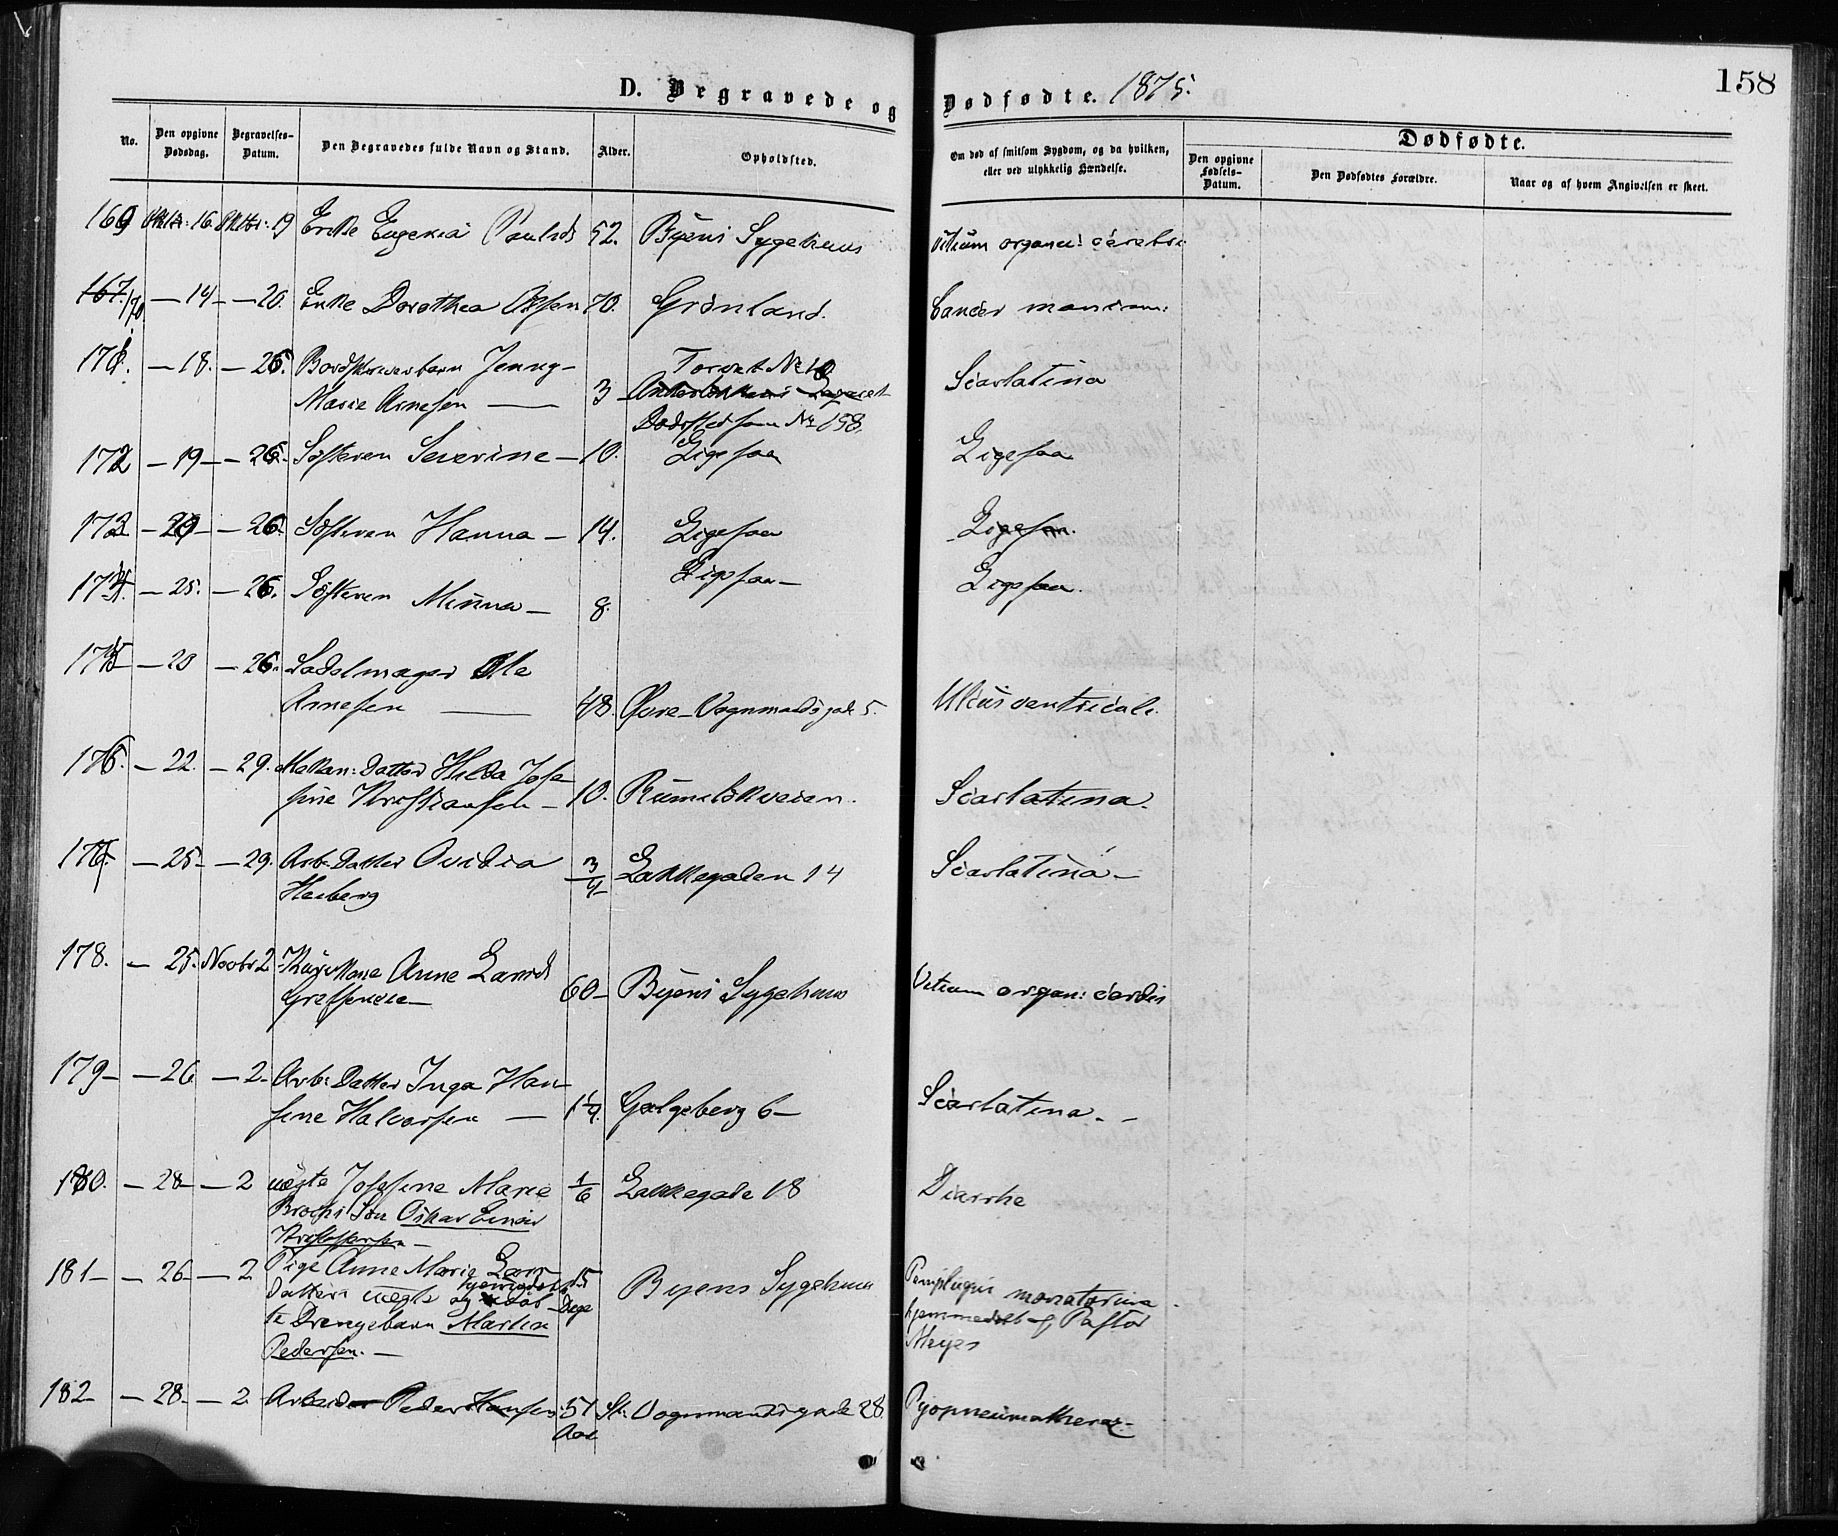 D. Begravede og Dødfødte. 1875.
158
No.
Den opgivne Dødsdag.
Begravelses-Datum.
Den Begravedes fulde Navn og Stand.
Alder.
Opholdsted.
Om død af smitsom Sygdom, og da hvilken, eller ved ulykkelig Hændelse.
Dødfødte.
Den opgivne Fødsels-Datum.
Den Dødfødtes Forældre.
Naar og af hvem Angivelsen er skeet.
169 Oktbr: 16. Oktbr: 19 Enke Eugenia 52. Byens Sygehuus Vitium organi: cerebri
167. 170. — 14 — — 20. Enke Dorothea Olsen 70. Grønland. Cancer
171. — 18. — 26. Jenny Torvet No 10
Marie Arnesen — 3 Scarlatina
Dødsted No 158.
172 — 19 — — 26. Søsteren Severine — 10. Ligesaa Ligesaa
173 — 20 — — 26. Søsteren Hanna — 14. Ligesaa Ligesaa.
174. — 25. — 26. Søsteren Minna — 8. Ligesaa — Ligesaa.
175 — 20 — 26. Sadelmager Ole
Arnesen — 48. Øvre Vognmandsgade 5. Ulcus ventriculi.
176. — 22. — 29. Datter Hilda Jose-
fine Kristiansen — 10. Rumelökveien. Scarlatina.
177. — 25 — — 29. Arb: Datter Ovidia 3/4 Lakkegaden 14 Scarlatina —
Heiberg
178. — 25. Novbr 2 Anne Larsd
Grefsen 60 — Byens Sygehuus Vitium organ: cordis
179 — — 26 — 2 — Arb: Datter Inga Han-
sine Halvorsen — 1 1/4. Galgeberg 6 — Scarlatina. —
180. — 28 — — 2 uægte Josefine Marie 1/6 Lakkegade 18 Diarrhe
Søn Oskar Einar
Kristoffersen —
181 — — 26 — — 2 Pige Anne Marie Lars- 15 Byens Sygehuus
datters uægte og hjemmedøb- Dage
te Drengebarn Martin hjemmedøbt af Pastor
Pedersen. — Meyer
182 — 28 — — 2 Arbeider Peder Hansen 51 St. Vognmandsgade 28. Pyopneumothorax.
Aar